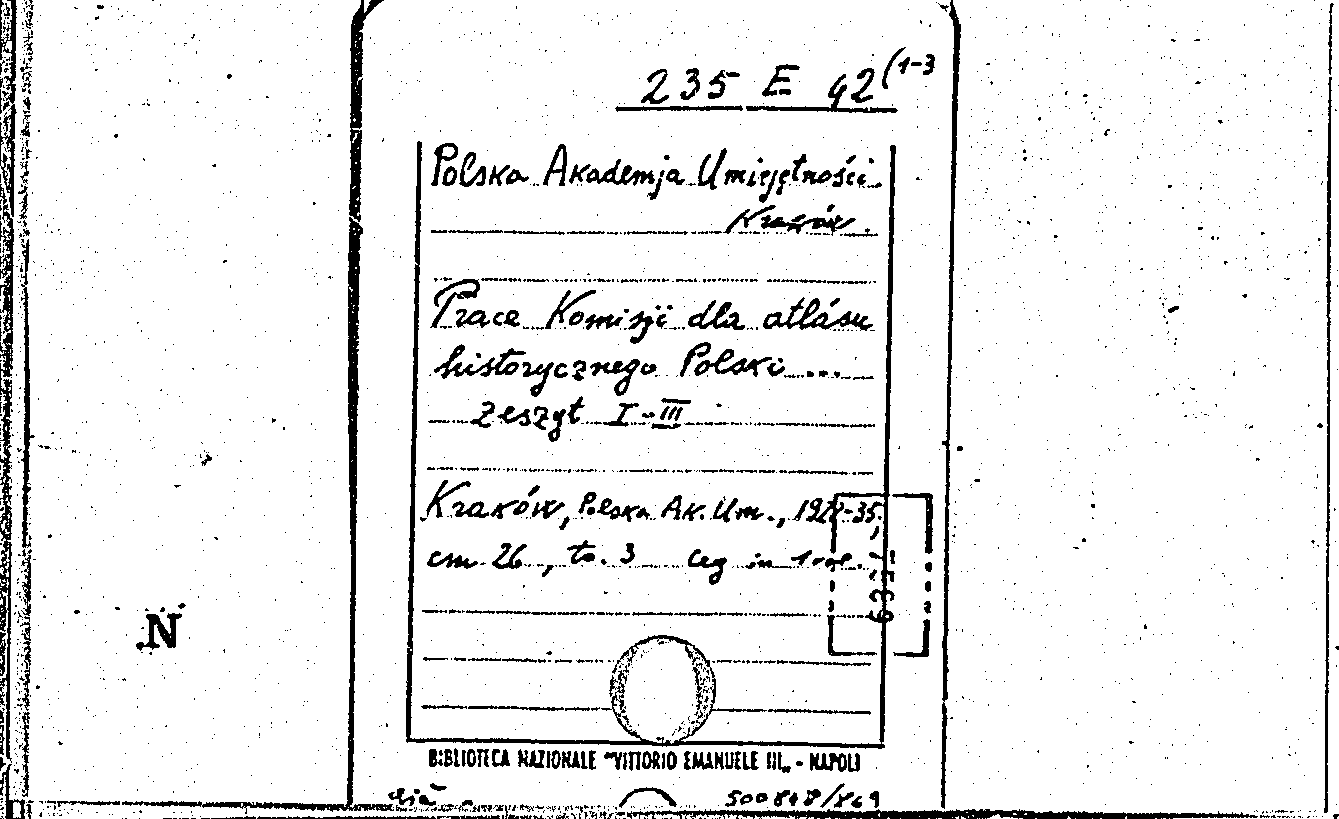 235 E 42(1-3
Polska Akademja Umiejętności.
Kraków.
Prace Komisji dla atlásu
historycznego Polski ...
Zeszyt I-III
Kraków, Polska Ak. Um., 1922-35,
cm 26, to. 3 leg in 1 vol.
N
BIBLIOTECA NAZIONALE "VITTORIO EMANUELE III„ - NAPOLI
500848/849